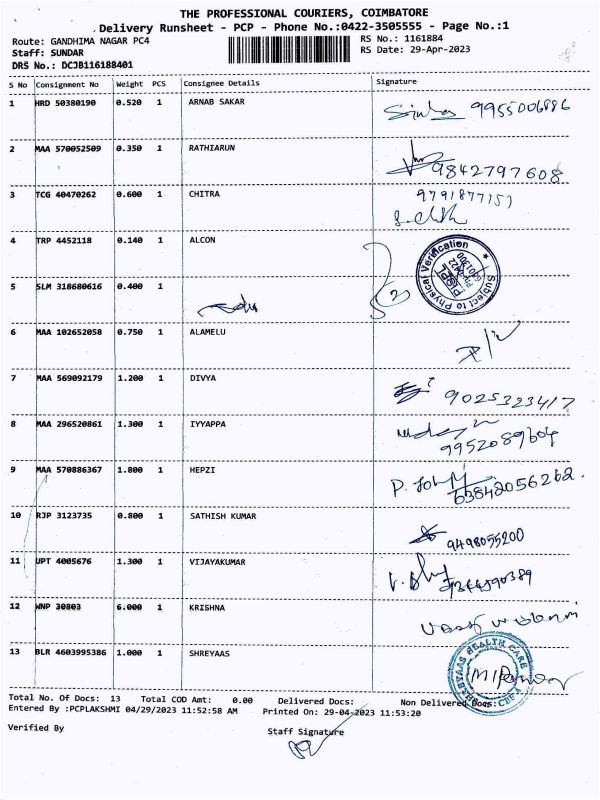 THE PROFESSIONAL COURIERS, COIMBATORE
Delivery Runsheet - PCP - Phone No.:0422-3505555 - Page No.:1
Route: GANDHIMA NAGAR PC4
RS No.: 1161884
Staff: SUNDAR
RS Date: 29-Apr-2023
DRS No.: DCJB116188401
S No Consignment No Weight PCS Consignee Details Signature
1 HRD 50380190 0.520 1 ARNAB SAKAR 9955006886
2 MAA 570052509 0.350 1 RATHIARUN 9842797608
3 TCG 40470262 0.600 1 CHITRA 9791877151
4 TRP 4452118 0.140 1 ALCON
Subject to Physical Verification
5 SLM 318680616 0.400 1
6 MAA 102652058 0.750 1 ALAMELU
7 MAA 569092179 1.200 1 DIVYA 9025323417
8 MAA 296520861 1.300 1 IYYAPPA 9952089604
9 MAA 570886367 1.800 1 HEPZI 63842056262
10 RJP 3123735 0.800 1 SATHISH KUMAR 9498055200
11 UPT 4005676 1.300 1 VIJAYAKUMAR
12 WNP 30803 6.000 1 KRISHNA
13 BLR 4603995386 1.000 1 SHREYAAS
SHREYAAS HEALTH CARE
Total No. Of Docs: 13 Total COD Amt: 0.00 Delivered Docs: Non Delivered Docs:
Entered By :PCPLAKSHMI 04/29/2023 11:52:58 AM Printed On: 29-04-2023 11:53:20
Verified By
Staff Signature